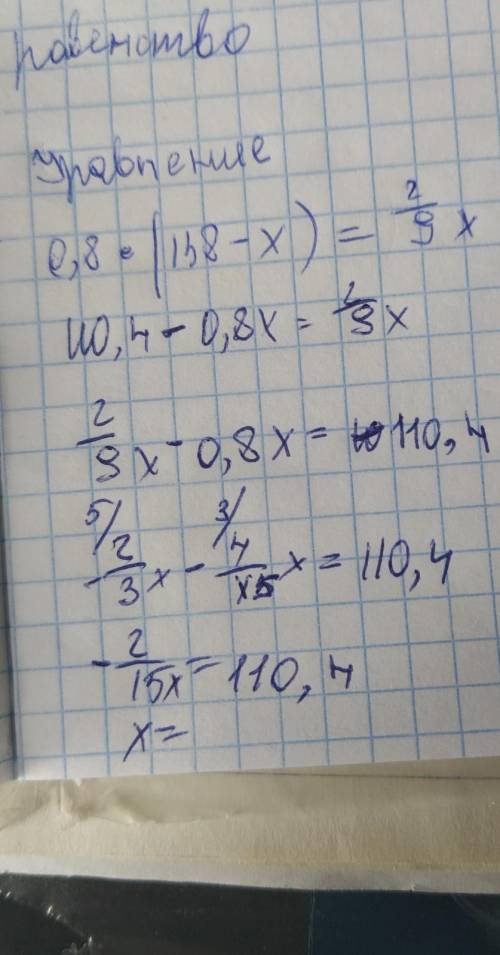 равенство
Уравнение
0,8 • (138 - x) = 2/9 x
110,4 - 0,8x = 2/9 x
2/9 x - 0,8x = 110,4
5/ 3/
- 2/3 x - 4/5 x = 110,4
- 2/15x = 110,4
x =